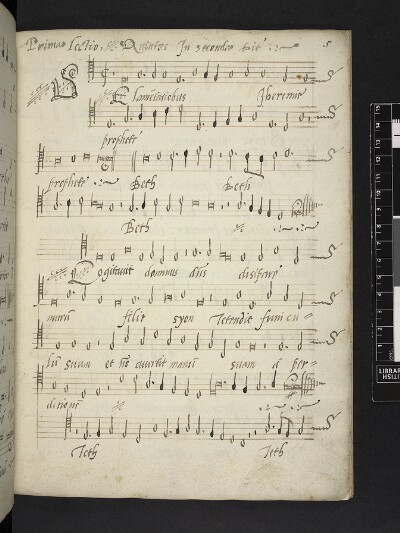 Prima Lectio. Quintus In secundo sit 5
De Lamentatiobus Jheremie
prophete
prophete Beth Beth
Beth
Cogitavit dominus dn̄s disipare
murū filie syon Tetendit funicu
lū suum et nō avertit manū suam a per-
ditione
Teth Teth
LIBRAR